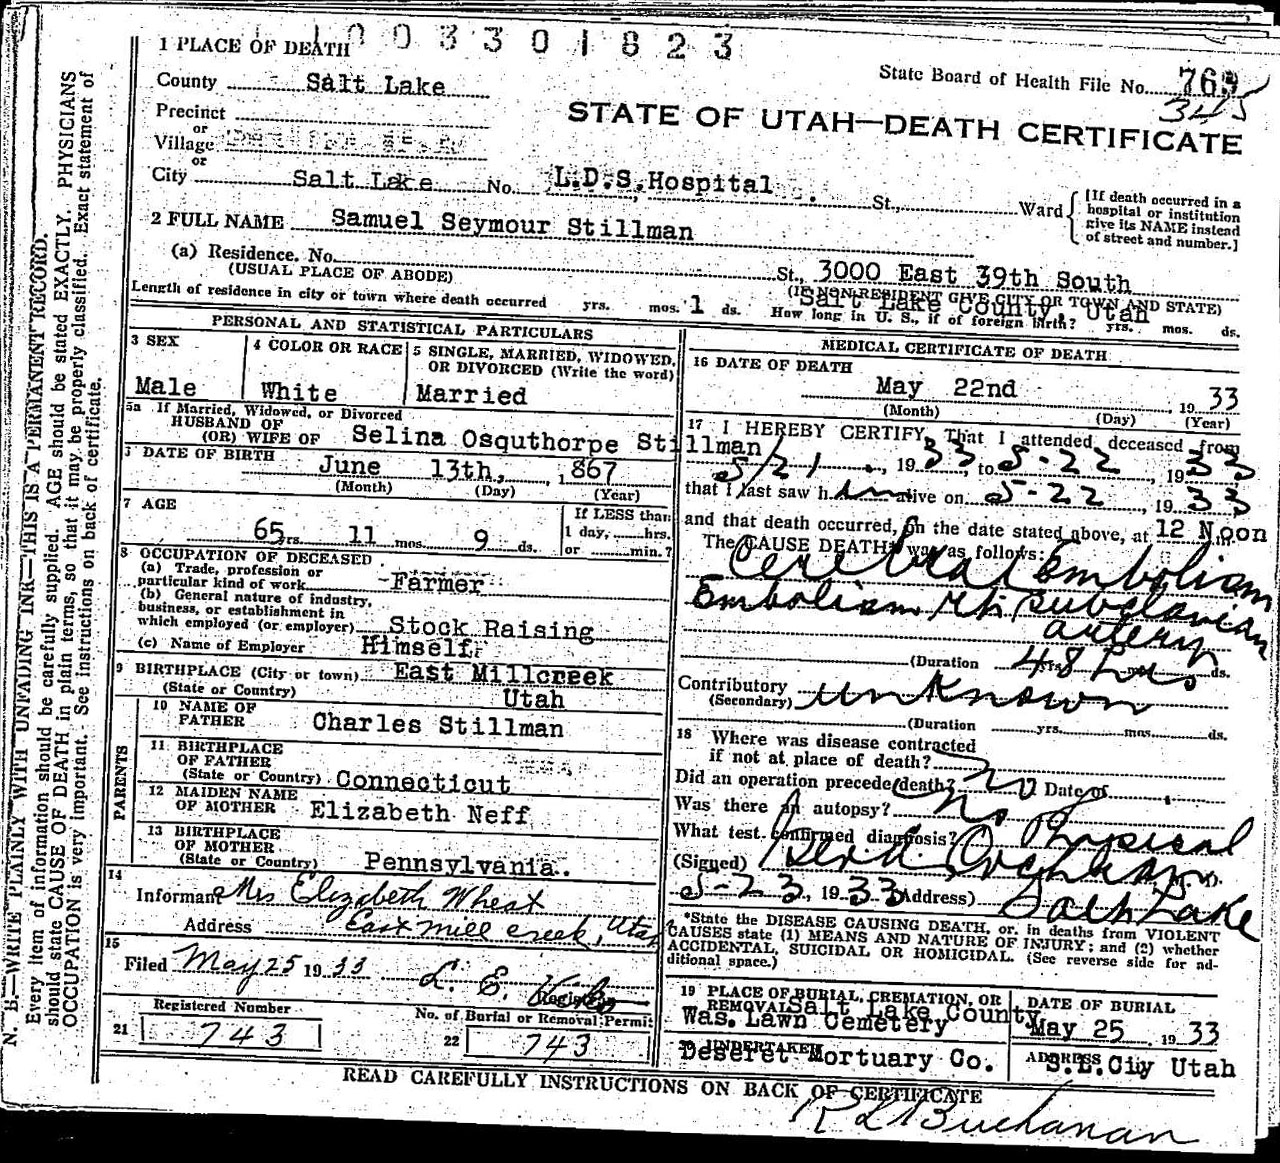 1003301823
1 PLACE OF DEATH
State Board of Health File No. 763
345
County Salt Lake
STATE OF UTAH—DEATH CERTIFICATE
Precinct
or
Village
or
City Salt Lake No. L.D.S. Hospital St., Ward
[If death occurred in a hospital or institution give its NAME instead of street and number.]
2 FULL NAME Samuel Seymour Stillman
(a) Residence. No. St., 3000 East 39th South
(USUAL PLACE OF ABODE) (IF NON-RESIDENT GIVE CITY OR TOWN AND STATE)
Salt Lake County, Utah
Length of residence in city or town where death occurred yrs. mos. 1 ds. How long in U. S., if of foreign birth? yrs. mos. ds.
PERSONAL AND STATISTICAL PARTICULARS
3 SEX
Male
4 COLOR OR RACE
White
5 SINGLE, MARRIED, WIDOWED, OR DIVORCED (Write the word)
Married
5a If Married, Widowed, or Divorced
HUSBAND OF
(OR) WIFE OF Selina Osquthorpe Stillman
DATE OF BIRTH
June 13th, 1867
(Month) (Day) (Year)
7 AGE
65 yrs 11 mos. 9 ds.
If LESS than
1 day, hrs.
or min.?
8 OCCUPATION OF DECEASED
(a) Trade, profession or
particular kind of work. Farmer
(b) General nature of industry,
business, or establishment in
which employed (or employer) Stock Raising
(c) Name of Employer Himself.
9 BIRTHPLACE (City or town) East Millcreek
(State or Country) Utah
PARENTS
10 NAME OF
FATHER Charles Stillman
11 BIRTHPLACE
OF FATHER
(State or Country) Connecticut
12 MAIDEN NAME
OF MOTHER Elizabeth Neff
13 BIRTHPLACE
OF MOTHER
(State or Country) Pennsylvania.
14
Informant Mrs Elizabeth Wheat
Address East Mill Creek, Utah
15
Filed May 25 1933 L. E.
Registrar
Registered Number
21 743
No. of Burial or Removal Permit
22 743
MEDICAL CERTIFICATE OF DEATH
16 DATE OF DEATH
May 22nd, 1933
(Month) (Day) (Year)
17 I HEREBY CERTIFY, That I attended deceased from
5/21, 1933 to 5-22 1933
that I last saw him alive on 5-22, 1933
and that death occurred, on the date stated above, at 12 Noon m.
The CAUSE DEATH* was as follows:
Cerebral Embolism
Embolism Rt subclavian
artery
(Duration yrs. mos. ds.
48 hrs
Contributory unknown
(Secondary)
(Duration yrs. mos. ds.
18 Where was disease contracted
if not at place of death?
Did an operation precede death? no Date of
Was there an autopsy? no
What test confirmed diagnosis? Physical
(Signed) M. D.
5-23, 1933 (Address) Salt Lake
*State the DISEASE CAUSING DEATH, or, in deaths from VIOLENT
CAUSES state (1) MEANS AND NATURE OF INJURY; and (2) whether
ACCIDENTAL, SUICIDAL OR HOMICIDAL. (See reverse side for ad-
ditional space.)
19 PLACE OF BURIAL, CREMATION, OR
REMOVAL Salt Lake County
Was. Lawn Cemetery
DATE OF BURIAL
May 25, 1933
20 UNDERTAKER
Deseret Mortuary Co.
ADDRESS
S.L.City Utah
READ CAREFULLY INSTRUCTIONS ON BACK OF CERTIFICATE
R L Buchanan
N. B.—WRITE PLAINLY WITH UNFADING INK—THIS IS A PERMANENT RECORD.
Every item of information should be carefully supplied. AGE should be stated EXACTLY. PHYSICIANS
should state CAUSE OF DEATH in plain terms, so that it may be properly classified. Exact statement of
OCCUPATION is very important. See instructions on back of certificate.